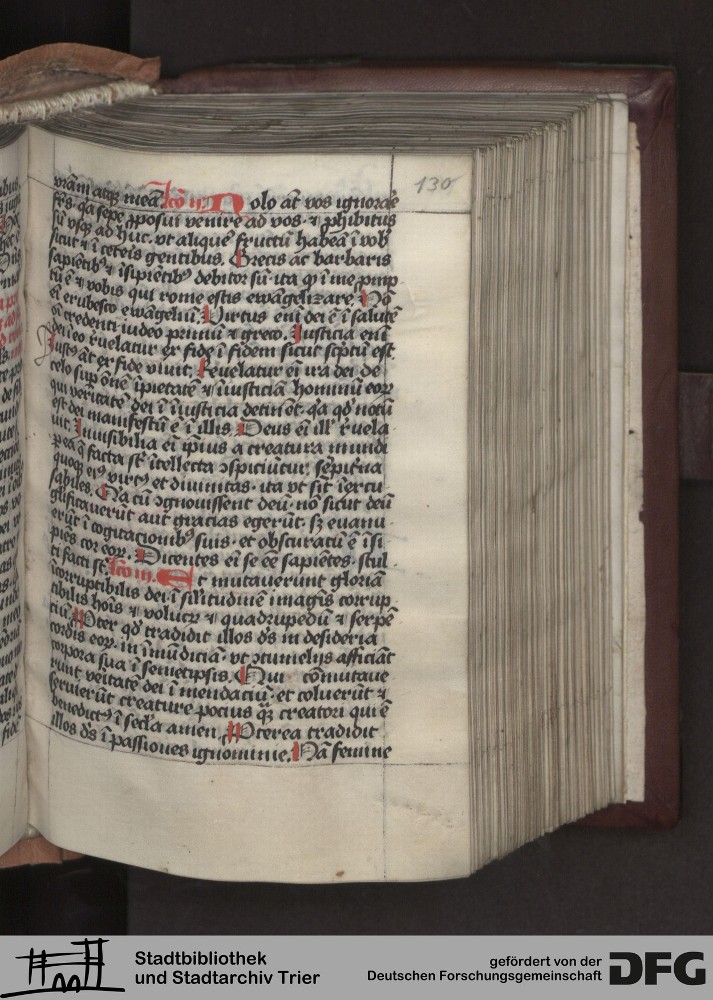 130
vr̄am atq̨ meā. lcō ij Nolo āt vos ignorare
frēs. qa sepe ꝓposui venire ad vos. ⁊ ꝓhibitus
sū vsq̨ ad huc. vt aliquē fructū habeā ī vob
sicut ⁊ ī ceteis gentibus. Grecis ac barbaris
sapiētibꝰ ⁊ īsipiētibꝰ debitor sū. ita ꝙ ī me ꝓmp
tū ē ⁊ vobis qui rome estis ewāgelizare. Nō
eī erubesco ewāgeliū. Virtus enī dei ē ī salutē
oī credenti iudeo primū ⁊ greco. Iusticia enī
dei ī eo r̄uelatur ex fide ī fidem sicut sc̄ptū est.
Iustꝰ āt ex fide viuit. Reuelatur eī ira dei de
celo suꝑ ōnē īpietatē ⁊ īiusticiā hominū eoꝝ
qui veritatē dei ī īiusticia detinēt. qa qd̄ notū
est dei manifestū ē ī illis. Deus eī ill̄ r̄uela
uit. Inuisibilia eī ipsius a creatura mundi
ꝑ ea q̄ facta st̄ ītellecta ↄspiciūtur. sēpit̄na
quoq̨ eiꝰ virtꝰ et diuinitas. ita vt sīt īexcu
sabiles. Qa cū ↄgnouissent deū. nō sicut deū
glīficauerūt aut gracias egerūt. sꝫ euanu
erūt ī cogitacionibꝰ suis. et obscuratū ē īsi
piēs cor eoꝝ. Dicentes eī se eē sapiētes. stul
ti facti st̄. lcō iij. Et mutauerunt gloriā
īcorruptibilis dei ī sil̄itudinē imagīs corrup
tibilis hoīs ⁊ volucꝝ ⁊ quadrupedū ⁊ serpē
tiū. Ꝓpter qd̄ tradidit illos ds̄ in desideria
cordis eoꝝ. in īmūdiciā. vt ↄtumelijs afficiāt
corpora sua ī semetipsis. Qui cōmutaue
runt veitatē dei ī mendaciū. et coluerūt ⁊
seruierūt creature pocius qꝫ creatori qui ē
benedictꝰ ī secl̄a amen. Ꝓpterea tradidit
illos ds̄ ī passiones ignominie. Nā femine
Stadtbibliothek
und Stadtarchiv Trier
gefördert von der
Deutschen Forschungsgemeinschaft
DFG